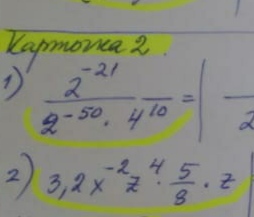 Карточка 2.
1) 2^-21 / (2^-50 · 4^10) =
2) 3,2x^-2 z^4 · 5/8 · z